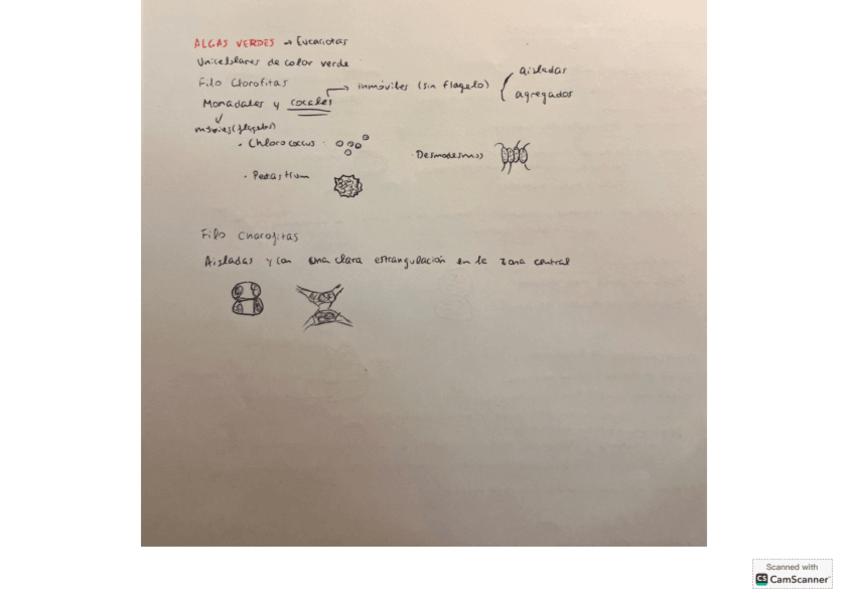 ALGAS VERDES → Eucariotas
Unicelulares de color verde
Filo Clorofitas
Monadales y cocales → inmóviles (sin flagelo) { aisladas
agregados
móviles (flagelos)
· Chlorococcus
· Desmodesmus
· Pediastrum
Filo Charofitas
Aisladas y con una clara estrangulación en la zona central
Scanned with
CS CamScanner